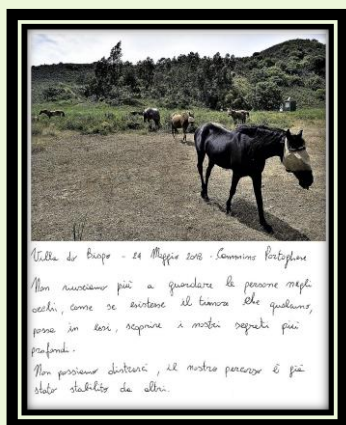 Villa do Bispo - 24 Maggio 2018 - Cammino Portoghese
Non riusciamo più a guardare le persone negli
occhi, come se esistesse il timore che qualcuno,
possa in essi, scoprire i nostri segreti più
profondi.
Non possiamo distrarci, il nostro percorso è già
stato stabilito da altri.